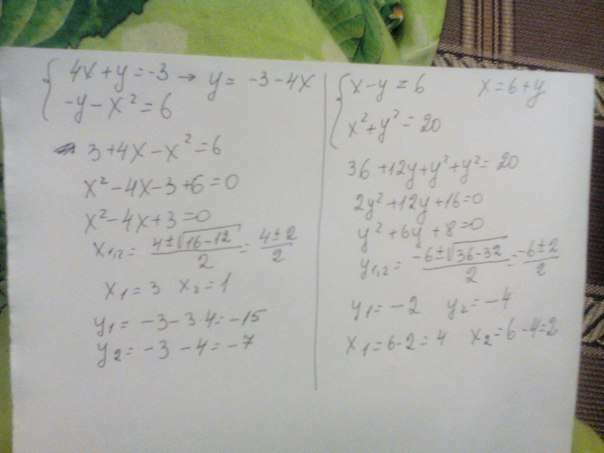 4x+y=-3 → y= -3-4x
-y-x²=6
3+4x-x²=6
x²-4x-3+6=0
x²-4x+3=0
x₁,₂= (4±√(16-12))/2 = (4±2)/2
x₁=3 x₂=1
y₁= -3-3·4=-15
y₂= -3-4=-7
x-y=6 x=6+y
x²+y²=20
36+12y+y²+y²=20
2y²+12y+16=0
y²+6y+8=0
y₁,₂= (-6±√(36-32))/2 = (-6±2)/2
y₁=-2 y₂=-4
x₁=6-2=4 x₂=6-4=2